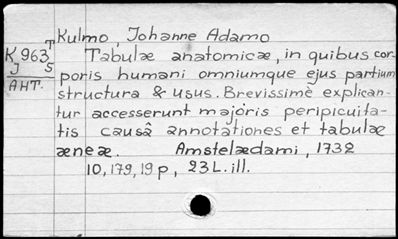 Kulmo, Johanne Adamo
K 963 T Tabulæ anatomicæ, in quibus cor
J S poris humani omniumque ejus partium
AHT. structura & usus. Brevissimè explican-
tur accesserunt majòris peripicuita-
tis causâ annotationes et tabulæ
æneæ. Amstelædami, 1732
10, 179, 19 p, 23 L. ill.